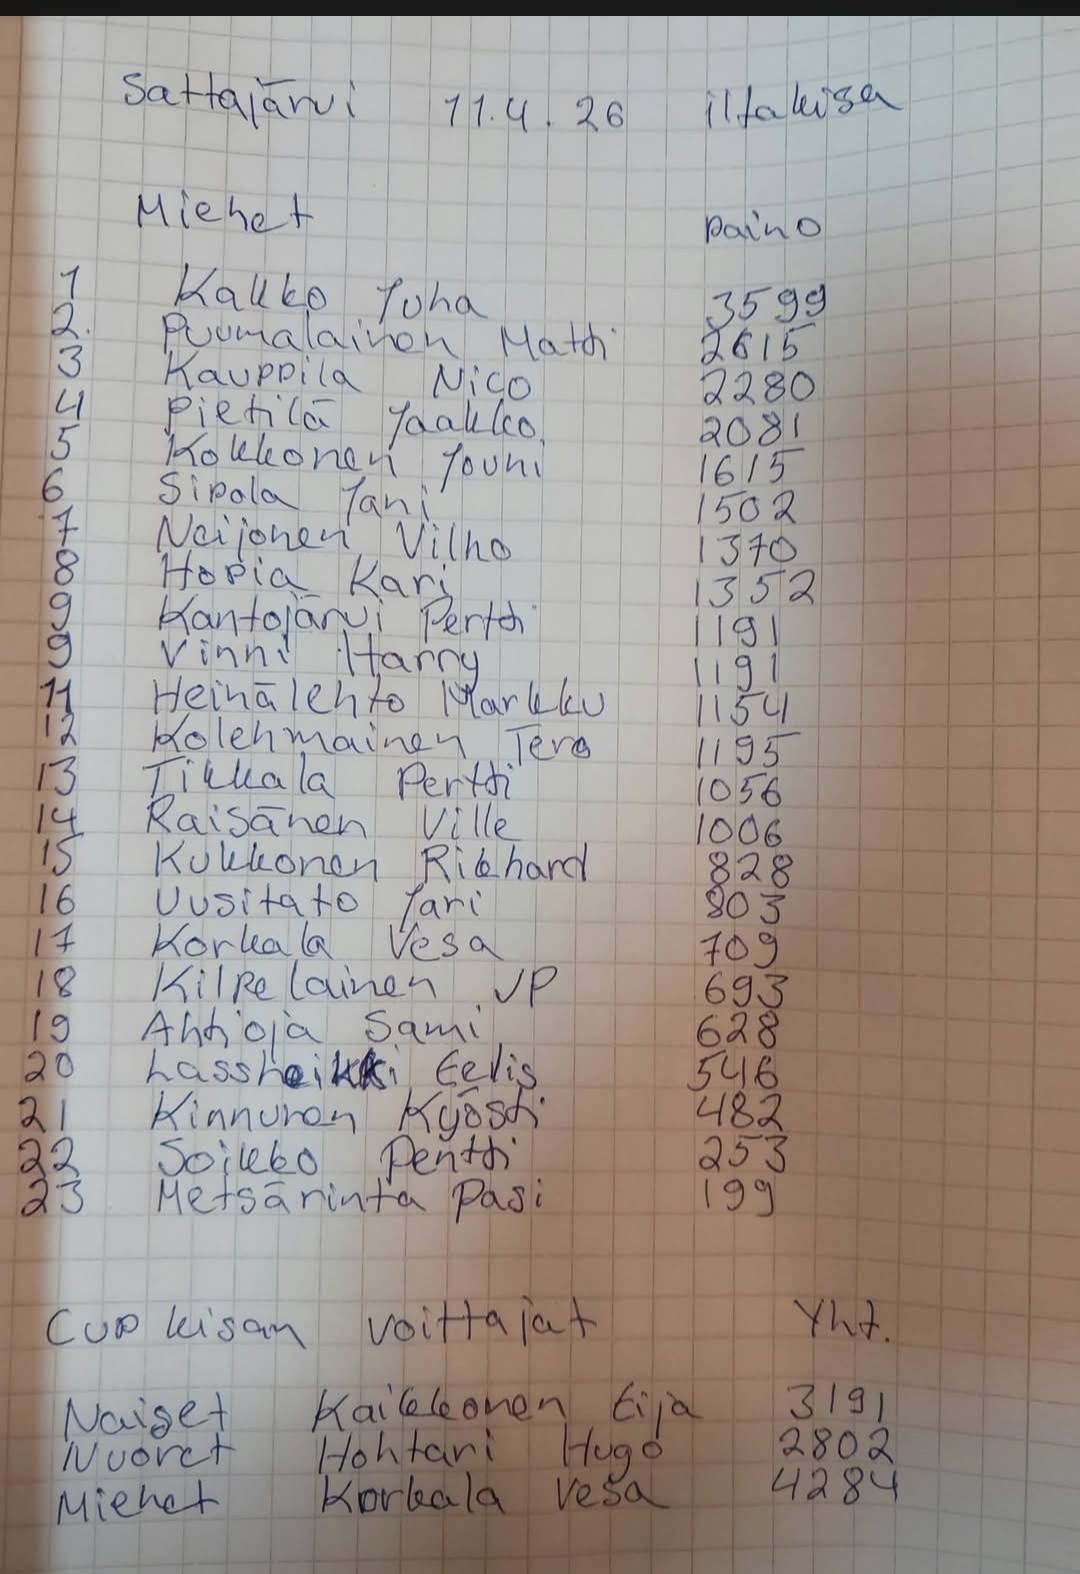 Sattajärvi 11.4.26 iltakisa
Miehet paino
1 Kakko Juha 3599
2. Puumalainen Matti 2615
3 Kauppila Nico 2280
4 Pietilä Jaakko 2081
5 Kokkonen Jouni 1615
6 Sipola Jani 1502
7 Neijonen Vilho 1370
8 Hopia Kari 1352
9 Kantojärvi Pertti 1191
9 Vinni Harry 1191
11 Heinälehto Markku 1154
12 Kolehmainen Tero 1195
13 Tikkala Pertti 1056
14 Raisänen Ville 1006
15 Kukkonen Rikhard 828
16 Uusitato Jari 803
17 Korkala Vesa 709
18 Kilpelainen JP 693
19 Ahtioja Sami 628
20 Lassheikki Eelis 546
21 Kinnunen Kyösti 482
22 Soikko Pentti 253
23 Metsärinta Pasi 199
Cup kisan voittajat Yht.
Naiset Kaikkonen Eija 3191
Nuoret Hohtari Hugo 2802
Miehet Korkala Vesa 4284